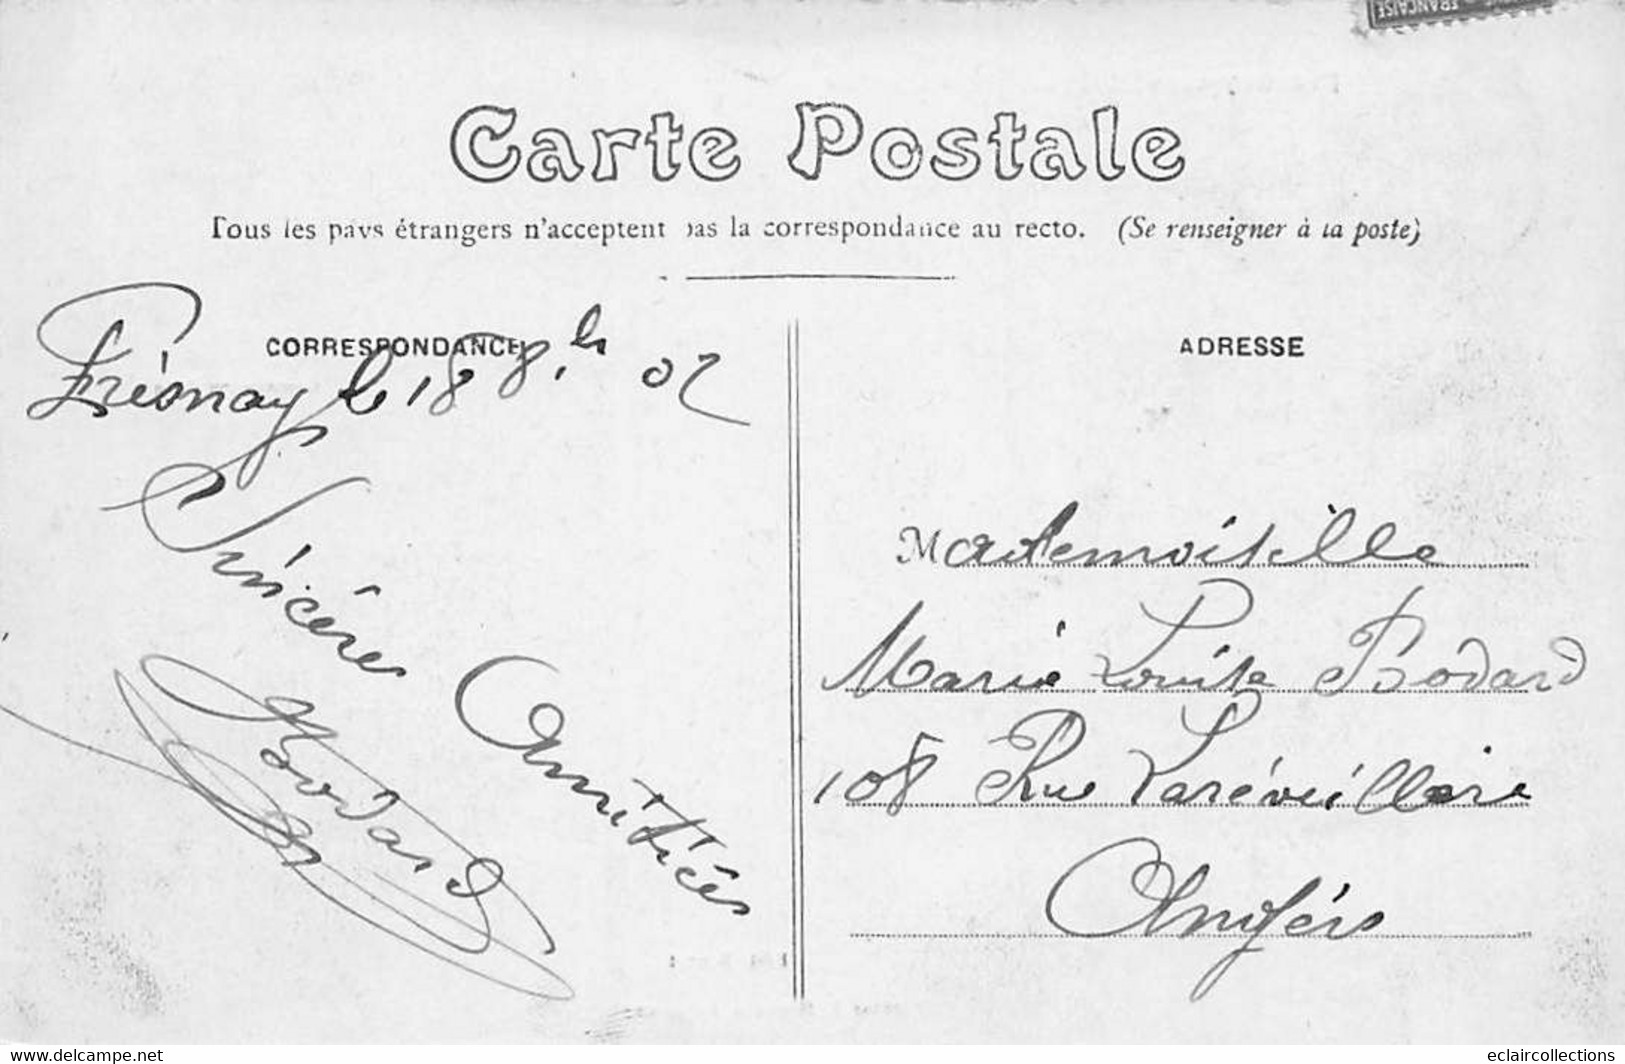 FRANÇAISE
Carte Postale
Tous les pays étrangers n'acceptent pas la correspondance au recto. (Se renseigner à la poste)
CORRESPONDANCE
Frésnay le 18 8.bre 07
Sincères Amitiés
Bodard
ADRESSE
Mademoiselle
Marie Louise Bodard
108 Rue Laréveillère
Angérs
www.delcampe.net
eclaircollections